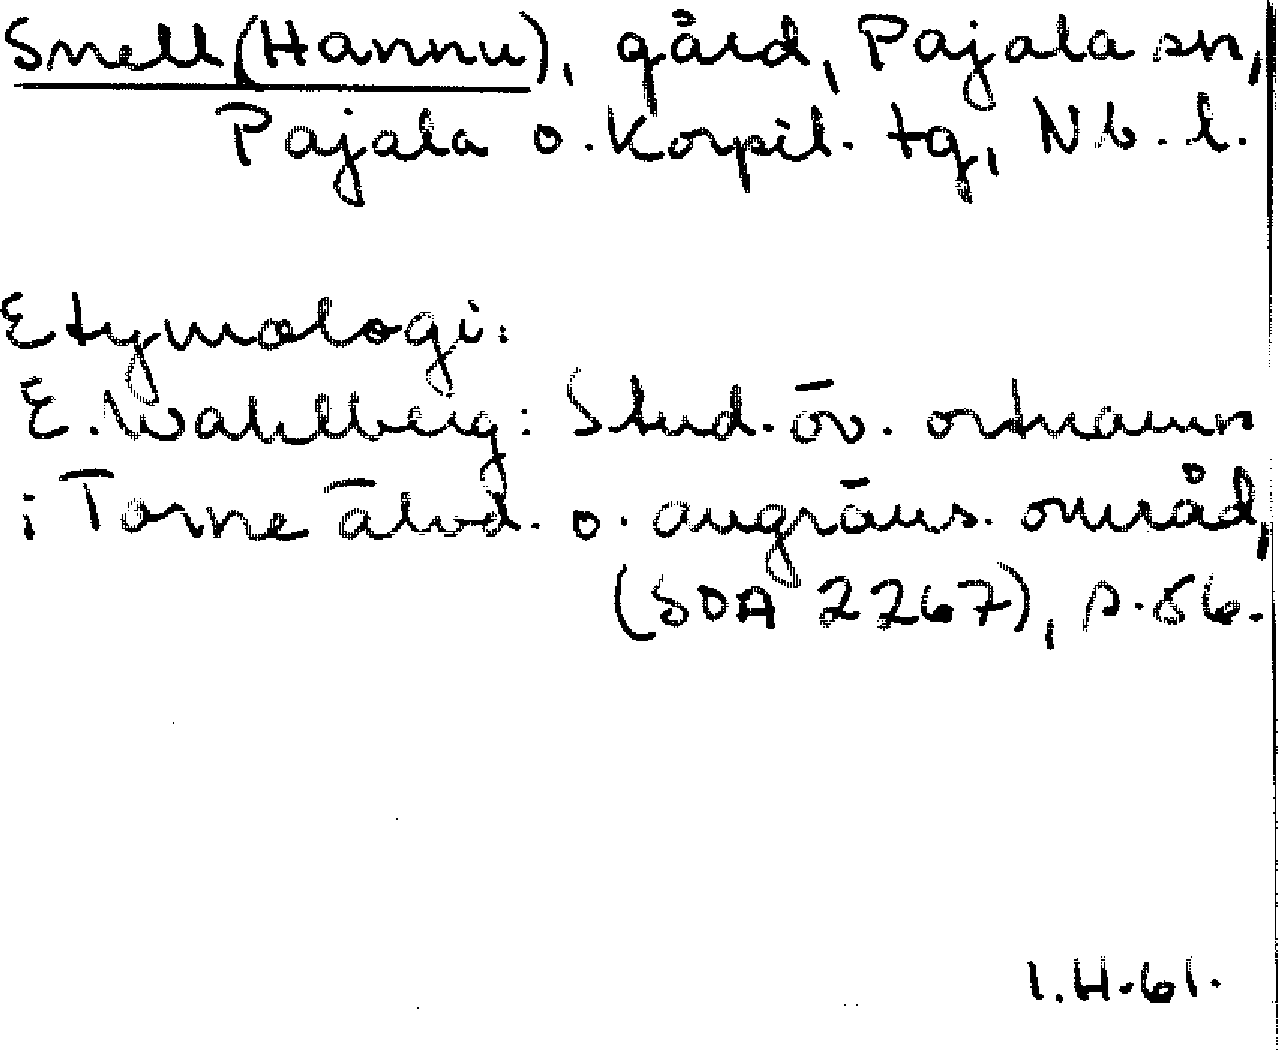 Snell (Hannu), gård, Pajala sn,
Pajala o. Korpil. tg, N.b.l.
Etymologi:
E. Wahlberg: Stud. öv. ortnamn
i Torne älvd. o. angräns. områd,
(SOA 2267), s. 56.
I.H.61.